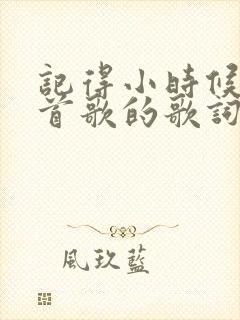 記得小時候
首歌的歌詞
風玖藍